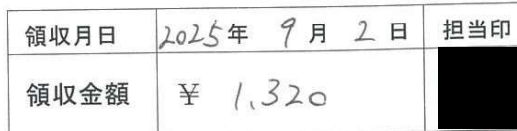 領収月日 2025年 9月 2日 担当印
領収金額 ¥ 1,320